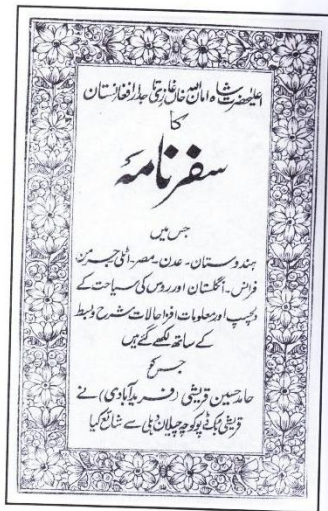 اعلیٰحضرت شاہ امان اللہ خان غازی تاجدار افغانستان
کا
سفرنامہ
جس میں
ہندوستان - عدن - مصر - اٹلی جرمن
فرانس - انگلستان اور روس کی سیاحت کے
دلچسپ اور معلومات افزا حالات شرح و بسط
کے ساتھ لکھے گئے ہیں
جس کو
حامد حسین قریشی (فریدآبادی) نے
قریشی بکڈپو کوچہ چیلان دہلی سے شائع کیا